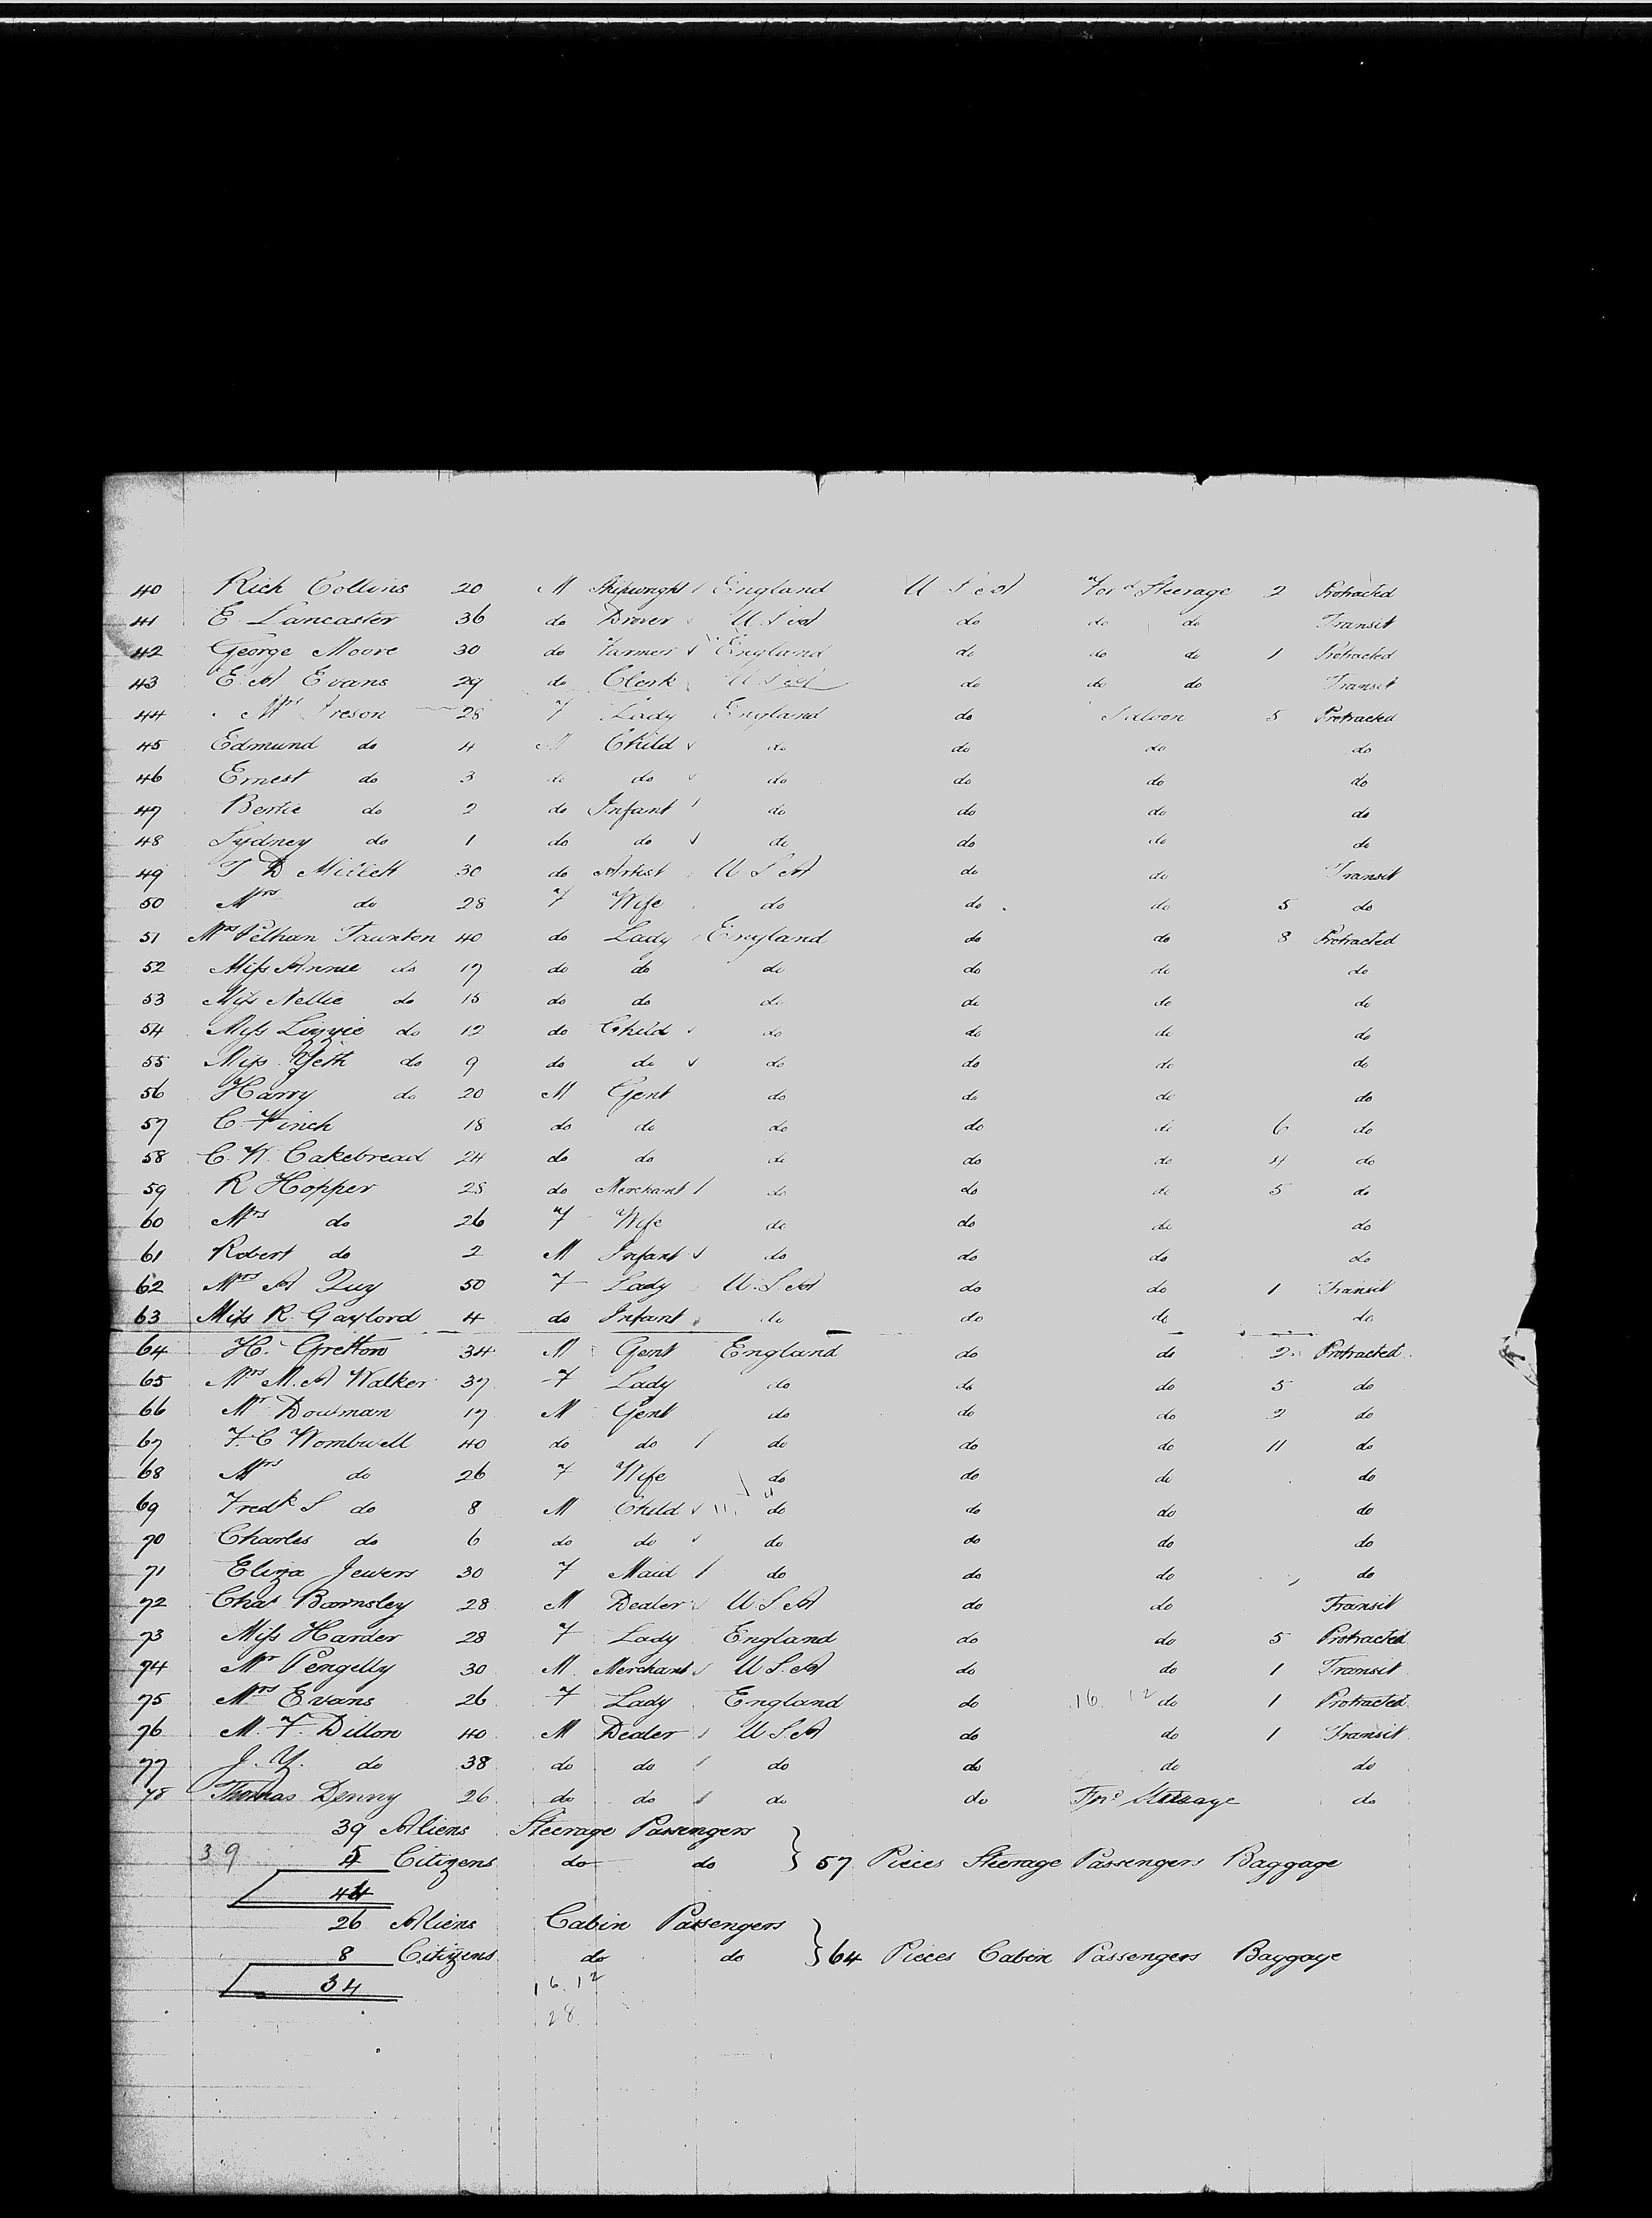 40 Rich Collins 20 M Shipwright England U S A For'd Steerage 2 Protracted
41 E. Lancaster 36 do Drover U.S.A do do do Transit
42 George Moore 30 do Farmer England do do do 1 Protracted
43 E. A Evans 29 do Clerk U S A do do do Transit
44 Mrs Ireson 28 F Lady England do Saloon 5 Protracted
45 Edmund do 4 M Child do do do do
46 Ernest do 3 do do do do do do
47 Bertie do 2 do Infant do do do do
48 Sydney do 1 do do do do do do
49 T D Millett 30 do Artist U S A do do Transit
50 Mrs do 28 F Wife do do do 5 do
51 Mrs Pelham Taunton 40 do Lady England do do 8 Protracted
52 Miss Annie do 17 do do do do do do
53 Miss Nellie do 15 do do do do do do
54 Miss Lizzie do 12 do Child do do do do
55 Miss do 9 do do do do do do
56 Harry do 20 M Gent do do do do
57 C. Finch 18 do do do do do 6 do
58 C. W. Cakebread 24 do do do do do 4 do
59 R Hopper 28 do Merchant do do do 5 do
60 Mrs do 26 F Wife do do do do
61 Robert do 2 M Infant do do do do
62 Mrs A Quy 50 F Lady U.S.A do do 1 Transit
63 Miss R. Gaylord 4 do Infant do do do do
64 H. Gretton 34 M Gent England do do 2 Protracted
65 Mrs M. A Walker 37 F Lady do do do 5 do
66 Mr Dowman 17 M Gent do do do 2 do
67 F. C Wombwell 40 do do do do do 11 do
68 Mrs do 26 F Wife do do do do
69 Fredk S do 8 M Child 11 do do do do
70 Charles do 6 do do do do do do
71 Eliza Jewers 30 F Maid do do do do
72 Chas Barnsley 28 M Dealer U S A do do Transit
73 Miss Harder 28 F Lady England do do 5 Protracted
74 Mr Pengelly 30 M Merchant U S.A do do 1 Transit
75 Mrs Evans 26 F Lady England do 16. 12 do 1 Protracted
76 M. F. Dillon 40 M Dealer U S.A do do 1 Transit
77 J. Y. do 38 do do do do do do
78 Thomas Denny 26 do do do do Steerage do
39 Aliens Steerage Passengers
39 5 Citizens do do } 57 Pieces Steerage Passengers Baggage
44
26 Aliens Cabin Passengers
8 Citizens do do } 64 Pieces Cabin Passengers Baggage
34 16.12
28